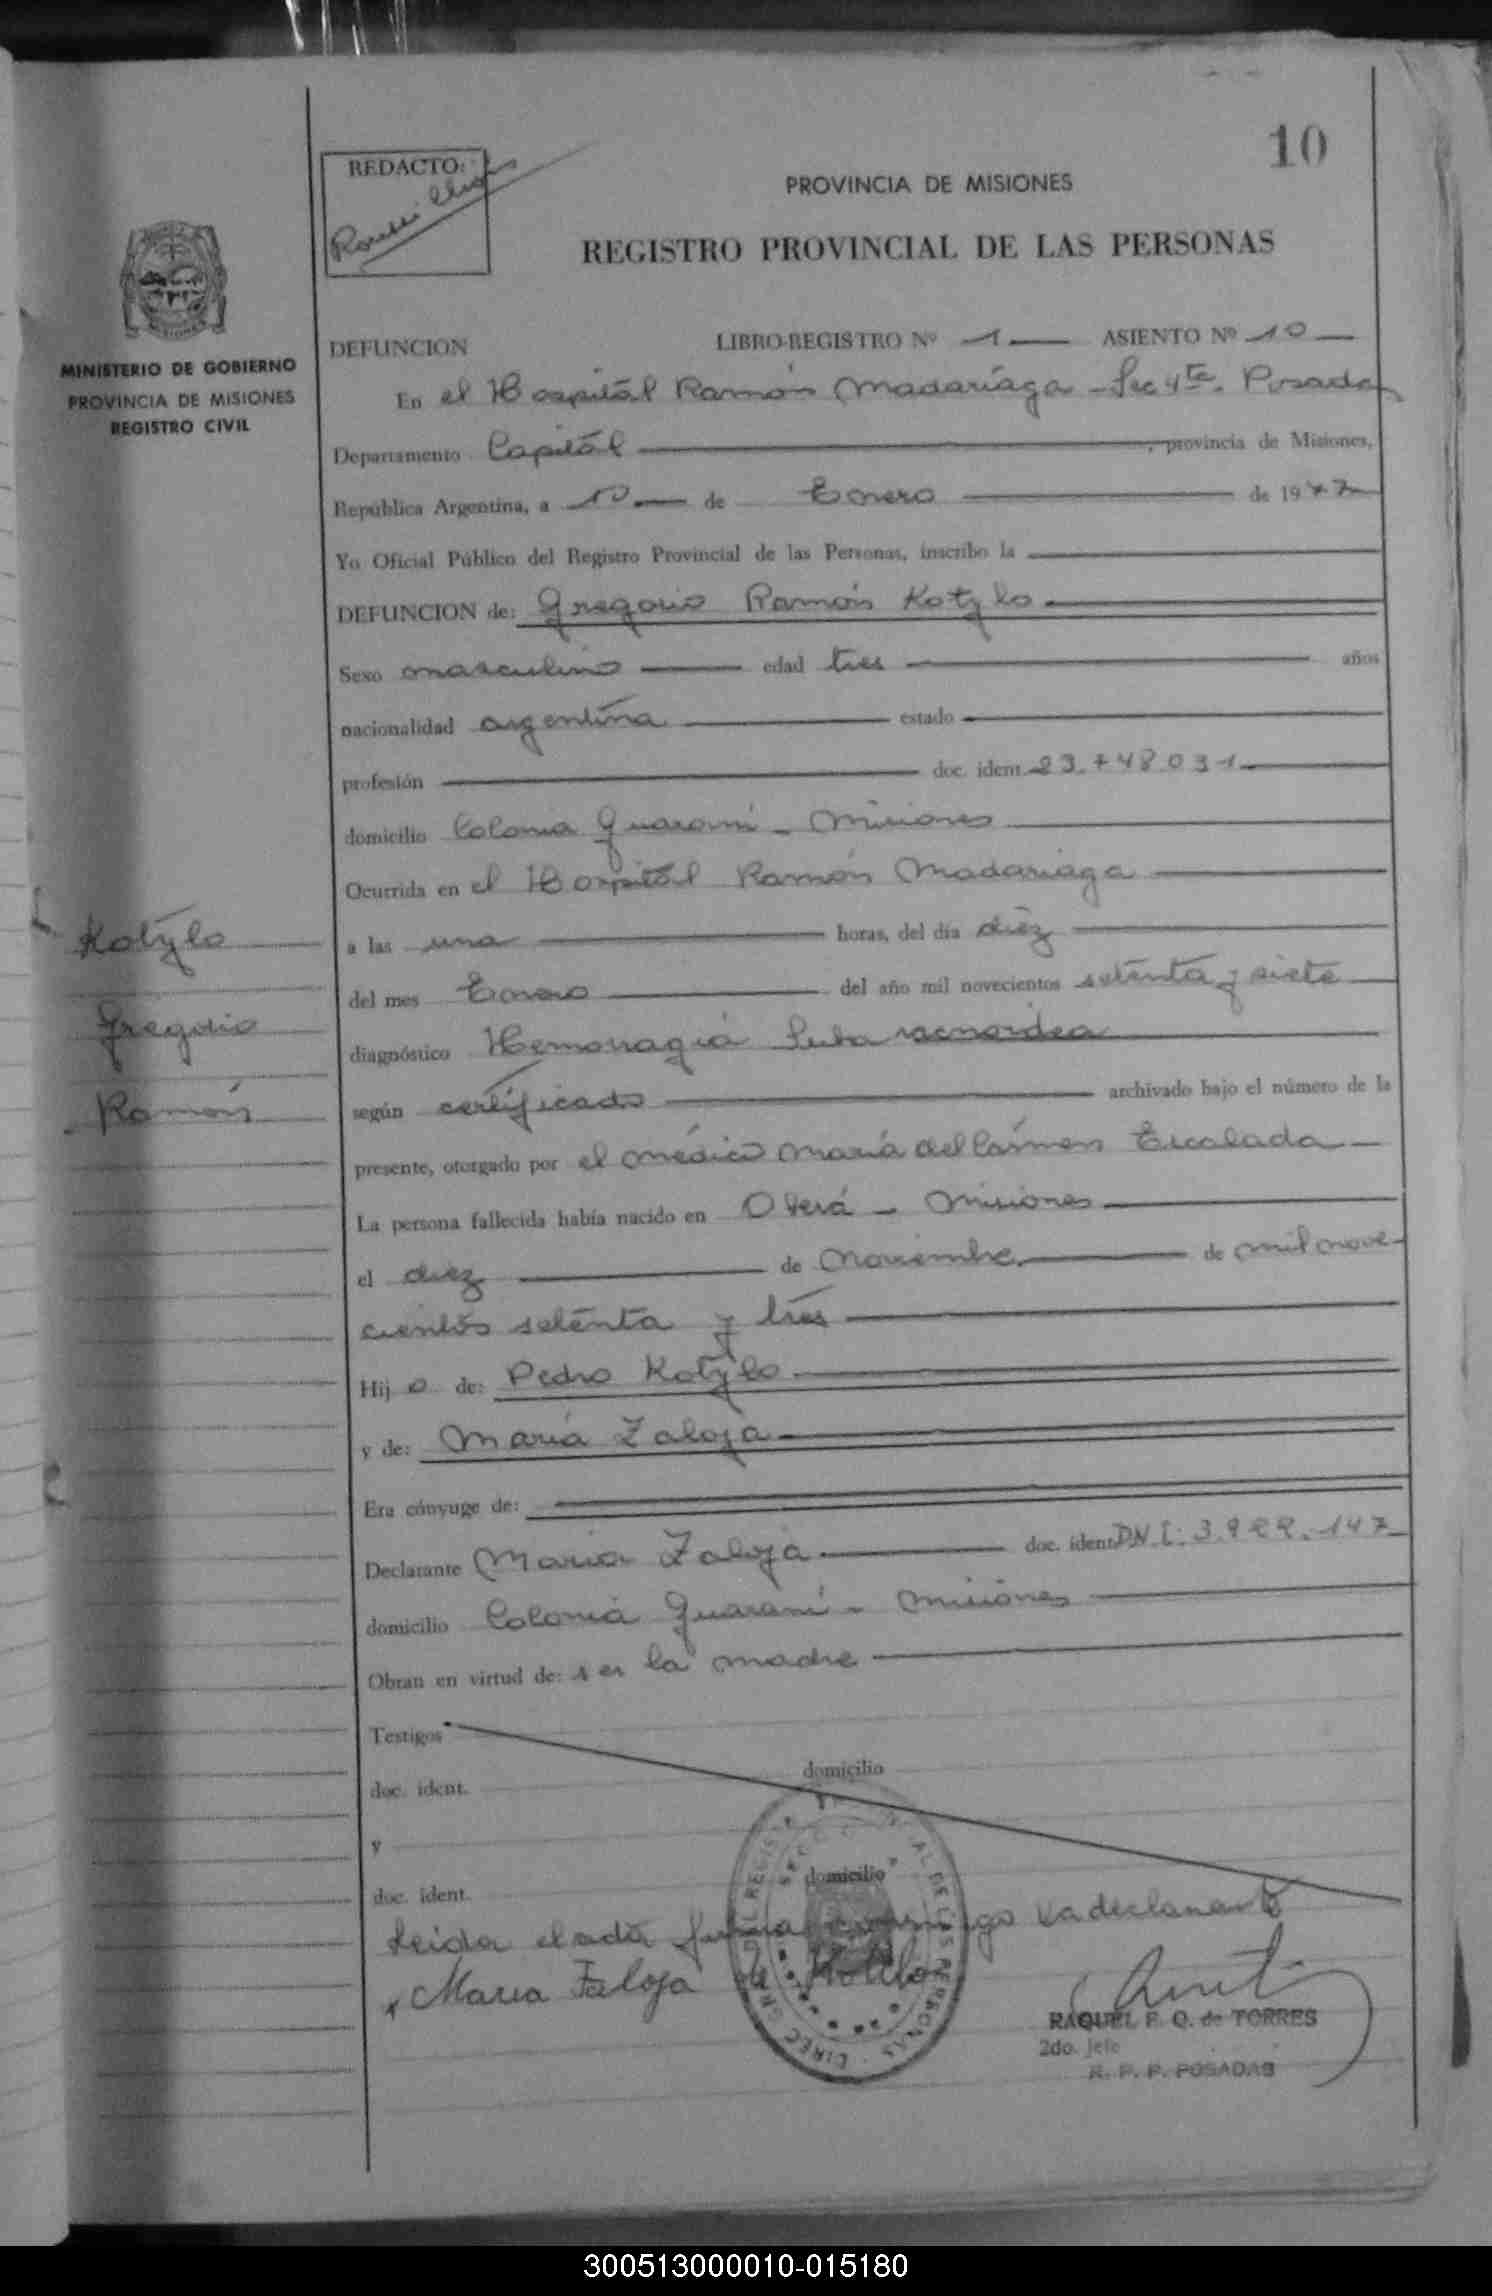 10
REDACTO:
PROVINCIA DE MISIONES
REGISTRO PROVINCIAL DE LAS PERSONAS
MISIONES
MINISTERIO DE GOBIERNO
PROVINCIA DE MISIONES
REGISTRO CIVIL
DEFUNCION LIBRO-REGISTRO Nº 1 ASIENTO Nº 10
En el Hospital Ramón Madariaga - Sec 4ta. Posadas
Departamento Capital, provincia de Misiones,
República Argentina, a 10 de Enero de 1977
Yo Oficial Público del Registro Provincial de las Personas, inscribo la
DEFUNCION de: Gregorio Ramón Kotylo
Sexo masculino edad tres años
nacionalidad argentina estado
profesión doc. ident. 23.748.031
domicilio Colonia Guaraní - Misiones
Ocurrida en el Hospital Ramón Madariaga
a las una horas, del día diez
del mes Enero del año mil novecientos setenta y siete
diagnóstico Hemorragia Sub
según certificado archivado bajo el número de la
presente, otorgado por el médico María del Cármen Escalada
La persona fallecida había nacido en Oberá - Misiones
el diez de Noviembre de mil nove-
cientos setenta y tres
Hijo de: Pedro Kotylo
y de: María Zaloja
Era cónyuge de:
Declarante María Zaloja doc. ident. DNI: 3.922.147
domicilio Colonia Guaraní - Misiones
Obran en virtud de: ser la madre
Testigos
domicilio
doc. ident.
y
domicilio
doc. ident.
Leida el acta firma conmigo la declarante
Maria Zaloja de Kotilo
RAQUEL F. Q. de TORRES
2do. Jefe
R. P. P. POSADAS
Kotylo
Gregorio
Ramón
300513000010-015180